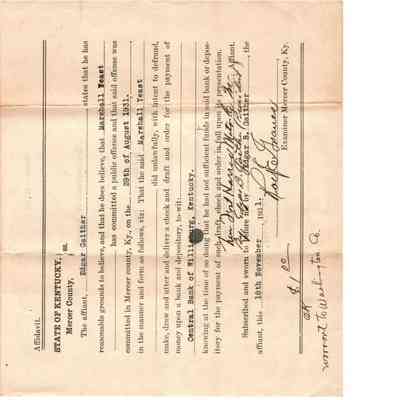 Affidavit.
STATE OF KENTUCKY, } ss.
Mercer County,
The affiant, Edgar Gaither states that he has
reasonable grounds to believe, and that he does believe, that Marshall Yeast
has committed a public offense and that said offense was
committed in Mercer county, Ky., on the 29th of August 1931.
in the manner and form as follows, viz: That the said Marshall Yeast
did unlawfully, with intent to defraud,
make, draw and utter and deliver a check and draft and order for the payment of
money upon a bank and depository, to-wit:
Central Bank of Willisburg, Kentucky.
knowing at the time of so doing that he had not sufficient funds in said bank or depos-
itory for the payment of such draft, check and order in full upon its presentation.
Affiant.
Subscribed and sworn to before me by Edgar B. Gaither, the
affiant, this 10th November, 1931.
Examiner Mercer County, Ky.
OK
warrant to Washington Co.